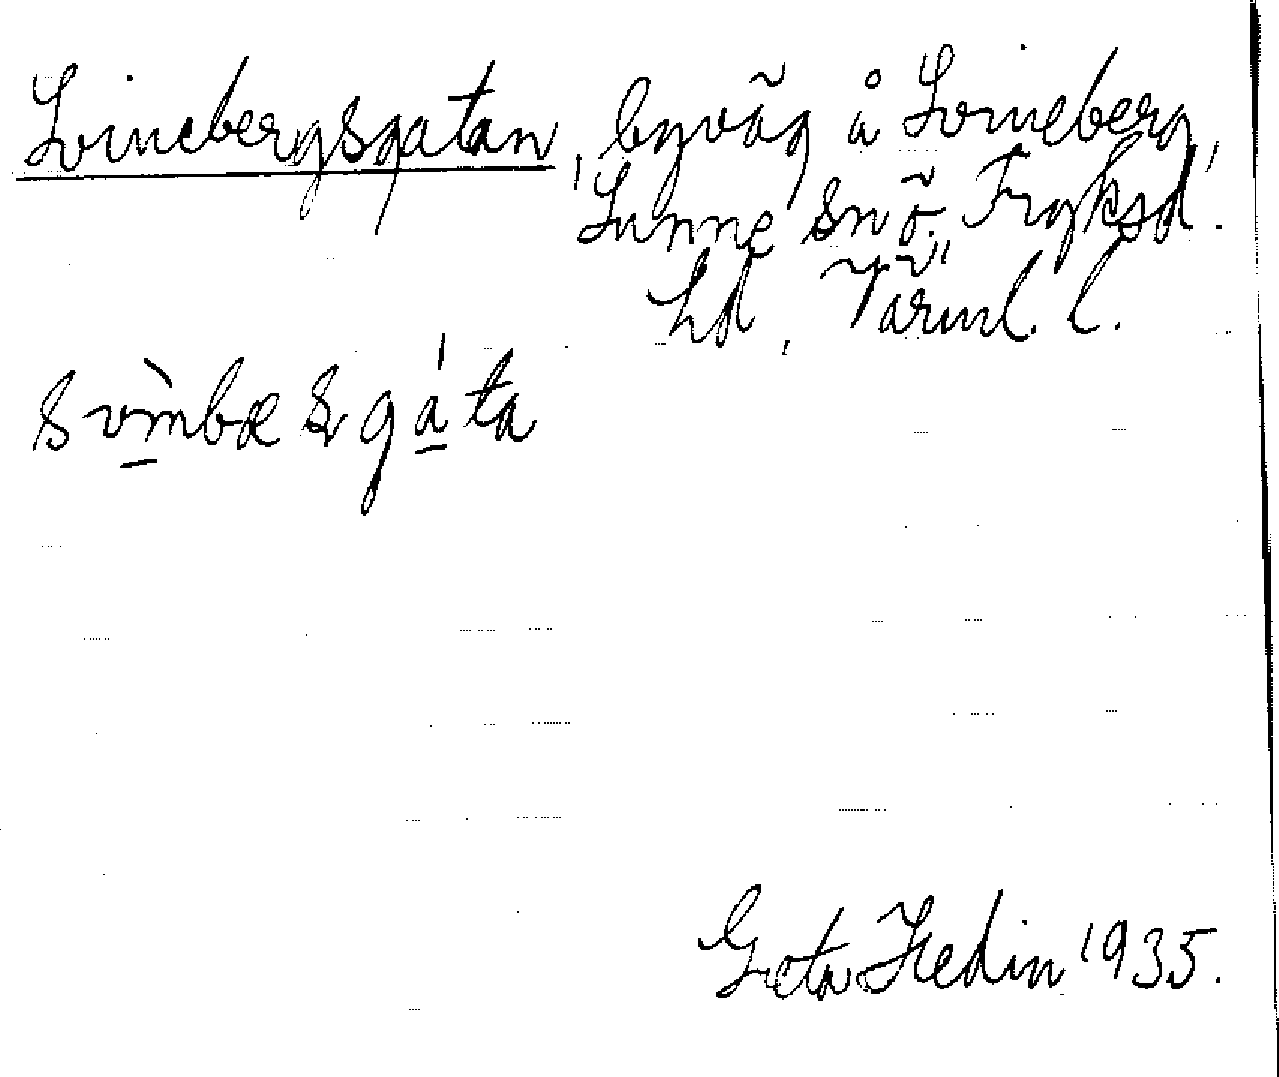 Svinebergsgatan, byväg å Svineberg,
Sunne sn ö. Fryksd.
hd, Värml. l.
svìmbæsgáta
Greta Hedin 1935.